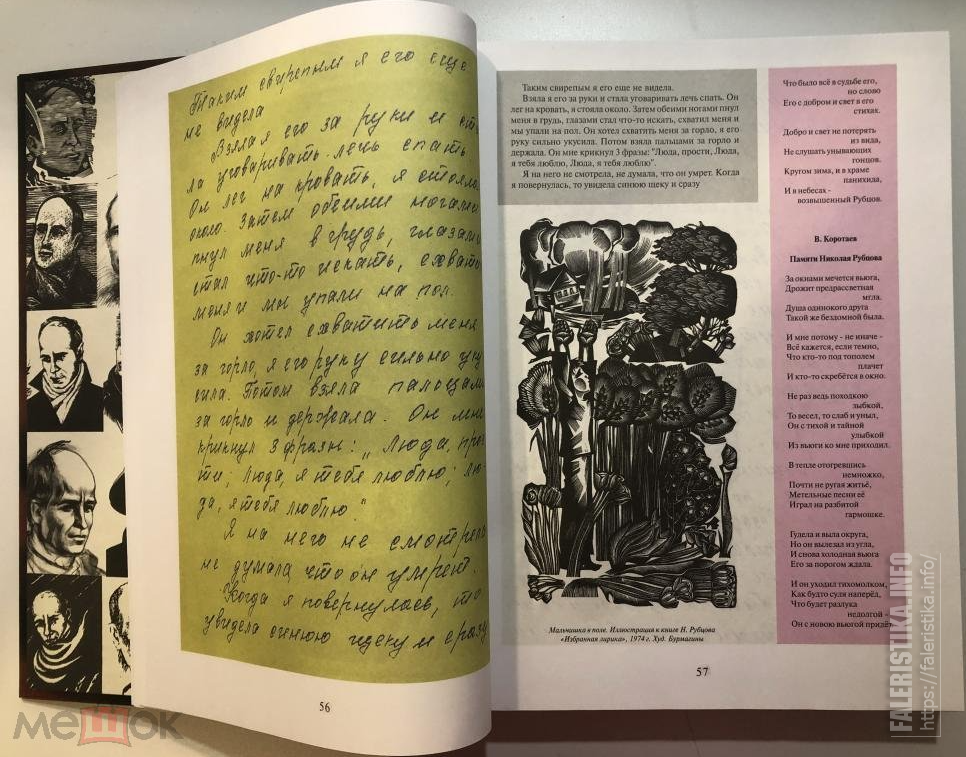 Таким свирепым я его еще
не видела
Взяла я его за руки и ста
ла уговаривать лечь спать
Он лег на кровать, я стояла
около. Затем обеими ногами
пнул меня в грудь, глазами
стал что-то искать, схватил
меня и мы упали на пол.
Он хотел схватить меня
за горло, я его руку сильно уку
сила. Потом взяла пальцами
за горло и держала. Он мне
крикнул 3 фразы: „Люда, прос
ти, Люда, я тебя люблю, Лю
да, я тебя люблю."
Я на него не смотрела
не думала, что он умрет.
Когда я повернулась, то
увидела синюю щеку и сразу
56
Таким свирепым я его еще не видела.
Взяла я его за руки и стала уговаривать лечь спать. Он
лег на кровать, я стояла около. Затем обеими ногами пнул
меня в грудь, глазами стал что-то искать, схватил меня и
мы упали на пол. Он хотел схватить меня за горло, я его
руку сильно укусила. Потом взяла пальцами за горло и
держала. Он мне крикнул 3 фразы: "Люда, прости, Люда,
я тебя люблю, Люда, я тебя люблю".
Я на него не смотрела, не думала, что он умрет. Когда
я повернулась, то увидела синюю щеку и сразу
Мальчишка в поле. Иллюстрация к книге Н. Рубцова
«Избранная лирика», 1974 г. Худ. Бурмагины
57
Что было всё в судьбе его,
но слово
Его с добром и свет в его
стихах.
Добро и свет не потерять
из вида,
Не слушать унывающих
гонцов.
Кругом зима, и в храме
панихида,
И в небесах -
возвышенный Рубцов.
В. Коротаев
Памяти Николая Рубцова
За окнами мечется вьюга,
Дрожит предрассветная
мгла.
Душа одинокого друга
Такой же бездомной была.
И мне потому - не иначе -
Всё кажется, если темно,
Что кто-то под тополем
плачет
И кто-то скребётся в окно.
Не раз ведь походкою
зыбкой,
То весел, то слаб и уныл,
Он с тихой и тайной
улыбкой
Из вьюги ко мне приходил.
В тепле отогревшись
немножко,
Почти не ругая житьё,
Метельные песни её
Играл на разбитой
гармошке.
Гудела и выла округа,
Но он вылезал из угла,
И снова холодная вьюга
Его за порогом ждала.
И он уходил тихомолком,
Как будто суля наперёд,
Что будет разлука
недолгой -
Он с новою вьюгой придёт.
мешок
FALERISTIKA.INFO
https://faleristika.info/